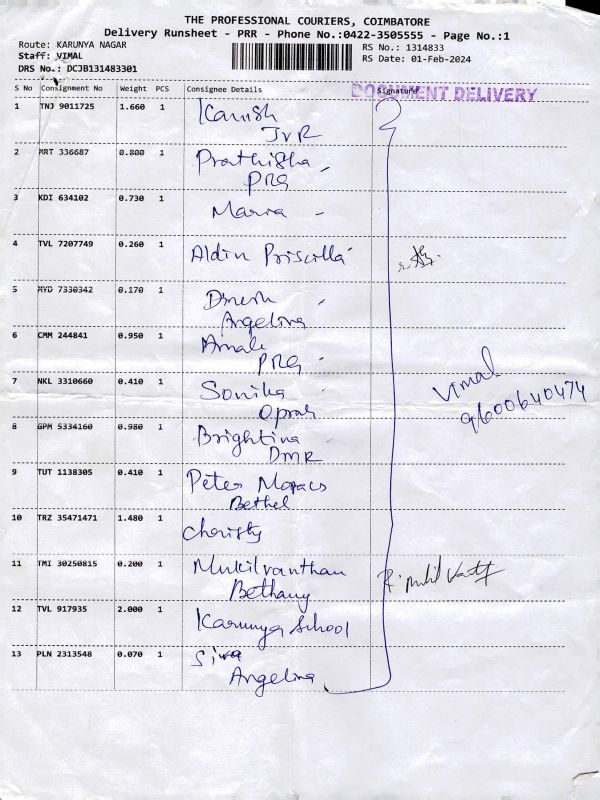 THE PROFESSIONAL COURIERS, COIMBATORE
Delivery Runsheet - PRR - Phone No.:0422-3505555 - Page No.:1
Route: KARUNYA NAGAR
Staff: VIMAL
DRS No.: DCJB131483301
RS No.: 1314833
RS Date: 01-Feb-2024
DOCUMENT DELIVERY
S No Consignment No Weight PCS Consignee Details Signature
1 TNJ 9011725 1.660 1 Kanish
JVR
2 MRT 336687 0.800 1 Prathisha
PRG
3 KDI 634102 0.730 1 Maria
4 TVL 7207749 0.260 1 Aldin Priscilla
5 HYD 7330342 0.170 1 Dinesh
Angelina
6 CMM 244841 0.950 1 Amala
PRG
7 NKL 3310660 0.410 1 Sonika
Oprah
8 GPM 5334160 0.980 1 Brightina
DMR
Vimal
9600640474
9 TUT 1138305 0.410 1 Peter
Bethel
10 TRZ 35471471 1.480 1 Christy
11 TMI 30250815 0.200 1 Mukilvanthan
Bethany
12 TVL 917935 2.000 1 Karunya School
13 PLN 2313548 0.070 1 Siva
Angelina